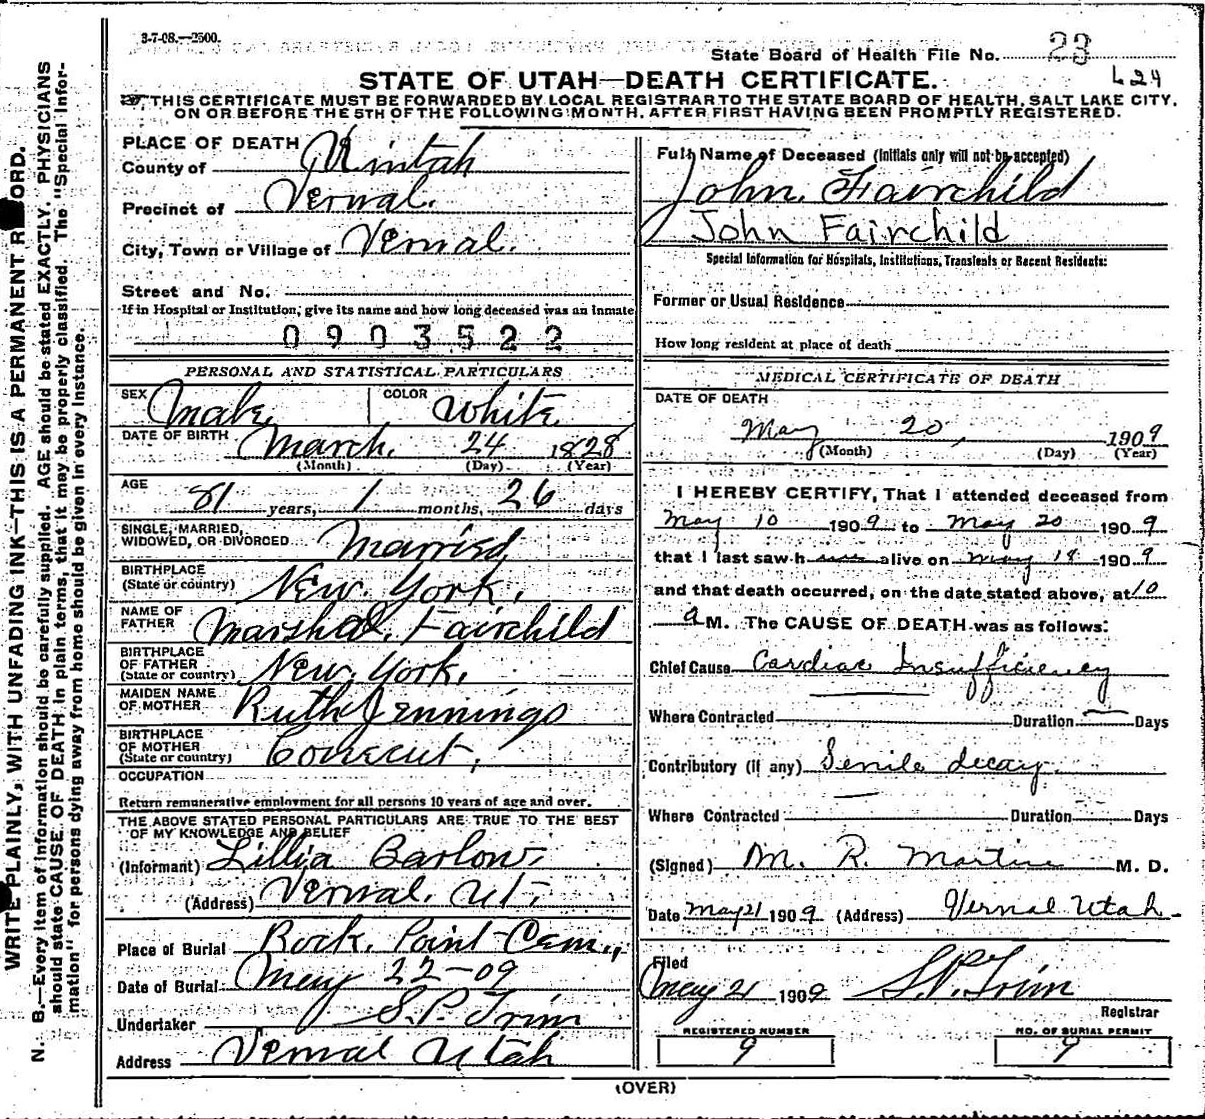 3-7-08.—2500.
State Board of Health File No. 23
L24
STATE OF UTAH—DEATH CERTIFICATE.
THIS CERTIFICATE MUST BE FORWARDED BY LOCAL REGISTRAR TO THE STATE BOARD OF HEALTH, SALT LAKE CITY,
ON OR BEFORE THE 5TH OF THE FOLLOWING MONTH, AFTER FIRST HAVING BEEN PROMPTLY REGISTERED.
WRITE PLAINLY, WITH UNFADING INK—THIS IS A PERMANENT RECORD.
N. B.—Every item of information should be carefully supplied. AGE should be stated EXACTLY. PHYSICIANS
should state CAUSE OF DEATH in plain terms, that it may be properly classified. The "Special Infor-
mation" for persons dying away from home should be given in every instance.
PLACE OF DEATH
County of Uintah
Precinct of Vernal.
City, Town or Village of Vernal.
Street and No.
If in Hospital or Institution, give its name and how long deceased was an inmate
0903522
PERSONAL AND STATISTICAL PARTICULARS
SEX Male COLOR White
DATE OF BIRTH March. 24 1828
(Month) (Day) (Year)
AGE 81 years, 1 months, 26 days
SINGLE, MARRIED,
WIDOWED, OR DIVORCED Married
BIRTHPLACE
(State or country) New York.
NAME OF
FATHER Marshal. Fairchild
BIRTHPLACE
OF FATHER
(State or country) New York.
MAIDEN NAME
OF MOTHER Ruth Jennings
BIRTHPLACE
OF MOTHER
(State or country) Conecut.
OCCUPATION
Return remunerative employment for all persons 10 years of age and over.
THE ABOVE STATED PERSONAL PARTICULARS ARE TRUE TO THE BEST
OF MY KNOWLEDGE AND BELIEF
(Informant) Lillia Barlow.
(Address) Vernal. Ut.
Place of Burial Rock. Point Cem.,
Date of Burial May 22-09
Undertaker S.P. Trim
Address Vernal Utah
Full Name of Deceased (Initials only will not be accepted)
John. Fairchild
John Fairchild
Special Information for Hospitals, Institutions, Transients or Recent Residents:
Former or Usual Residence
How long resident at place of death
MEDICAL CERTIFICATE OF DEATH
DATE OF DEATH
May 20, 1909
(Month) (Day) (Year)
I HEREBY CERTIFY, That I attended deceased from
May 10 1909 to May 20 1909
that I last saw h alive on May 18 1909
and that death occurred, on the date stated above, at 10
a M. The CAUSE OF DEATH was as follows:
Chief Cause Cardiac Insufficiency
Where Contracted Duration Days
Contributory (if any) Senile decay
Where Contracted Duration Days
(Signed) M. R. Martin M. D.
Date May 21 1909 (Address) Vernal Utah
Filed
May 21 1909 S.P. Trim
Registrar
REGISTERED NUMBER
9
NO. OF BURIAL PERMIT
9
(OVER)